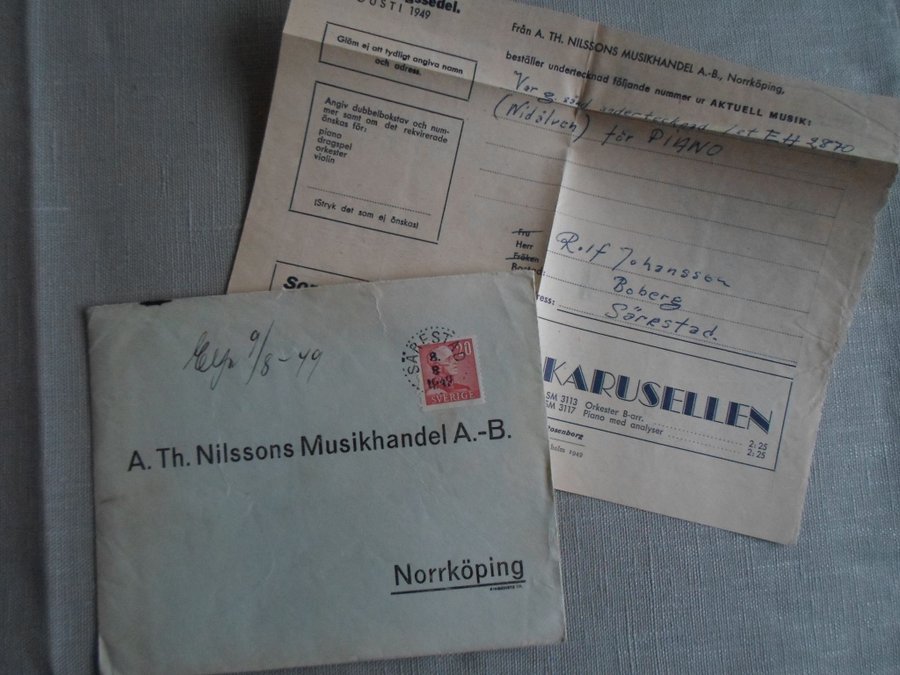 gssedel.
USTI 1949
Glöm ej att tydligt angiva namn
och adress.
Angiv dubbelbokstav och num-
mer samt om det rekvirerade
önskas för:
piano
dragspel
orkester
violin
(Stryk det som ej önskas)
Från A. TH. NILSSONS MUSIKHANDEL A.-B., Norrköping,
beställer undertecknad följande nummer ur AKTUELL MUSIK:
Var g. sänd undertecknad 1 st EH 2870
(Nidälven) för PIANO
Fru
Herr
Fröken
Bostad:
ress:
Rolf Johansson
Boberg
Särestad.
KARUSELLEN
SM 3113 Orkester B-arr. 2:25
SM 3117 Piano med analyser 2:25
Rosenborg
holm 1949
Som
9/8-49
SÄRESTAD
8.
8
1949
20
SVERIGE
A. Th. Nilssons Musikhandel A.-B.
Norrköping